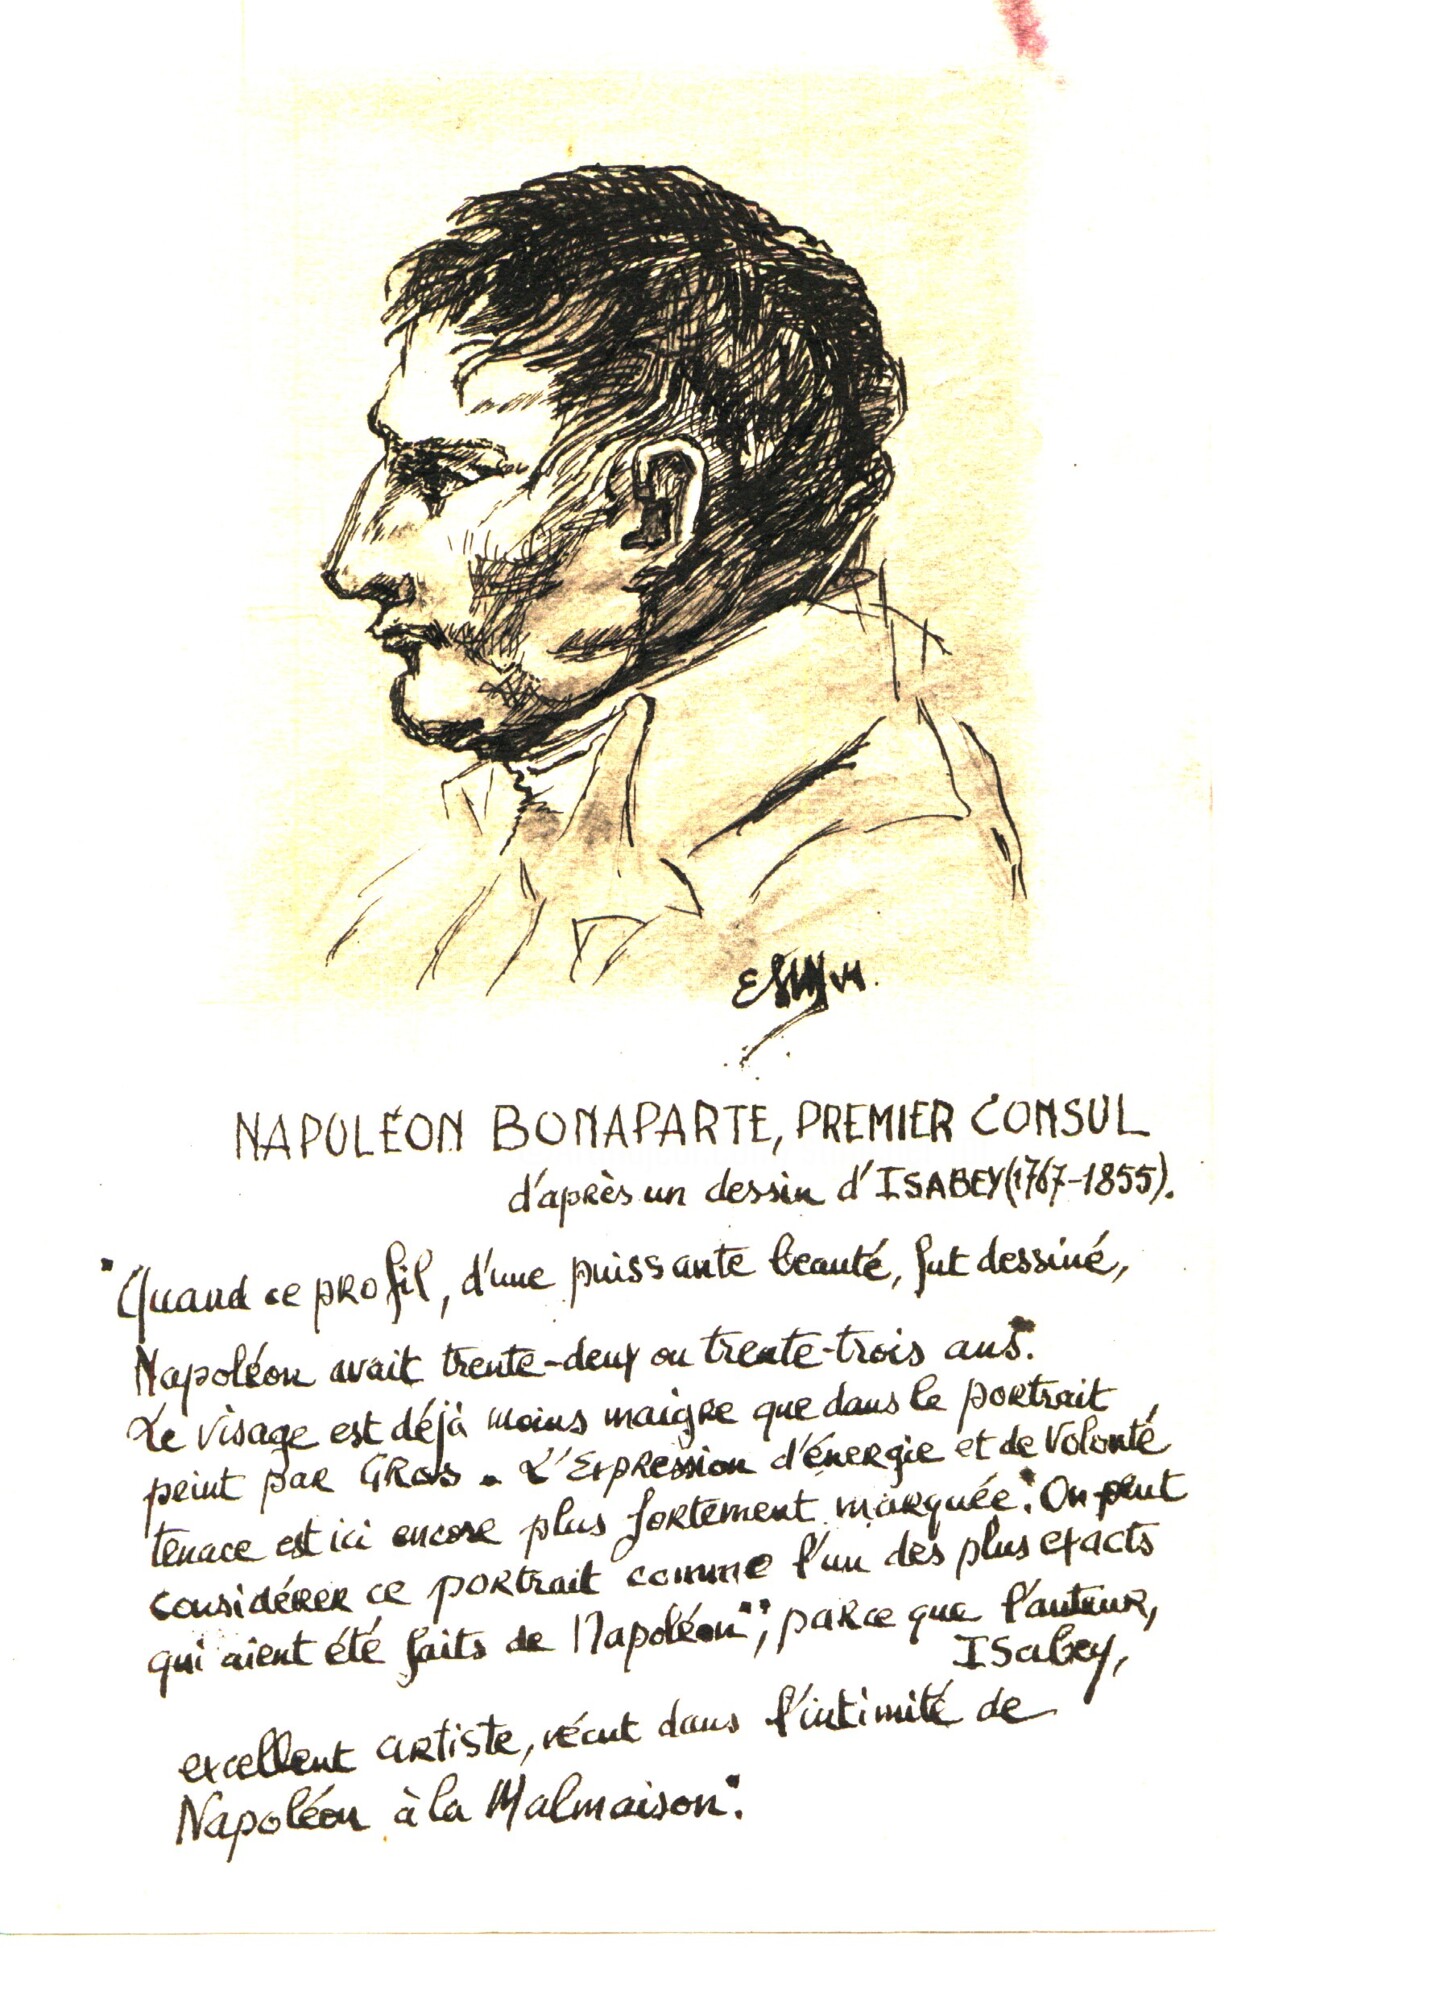 NAPOLÉON BONAPARTE, PREMIER CONSUL
d'après un dessin d'ISABEY (1767-1855).
"Quand ce profil, d'une puissante beauté, fut dessiné,
Napoléon avait trente-deux ou trente-trois ans".
Le visage est déjà moins maigre que dans le portrait
peint par GROS. L'Expression d'énergie et de volonté
tenace est ici encore plus fortement marquée". On peut
considérer ce portrait comme l'un des plus exacts
qui aient été faits de Napoléon", parce que l'auteur,
Isabey,
excellent artiste, vécut dans l'intimité de
Napoléon à la Malmaison".